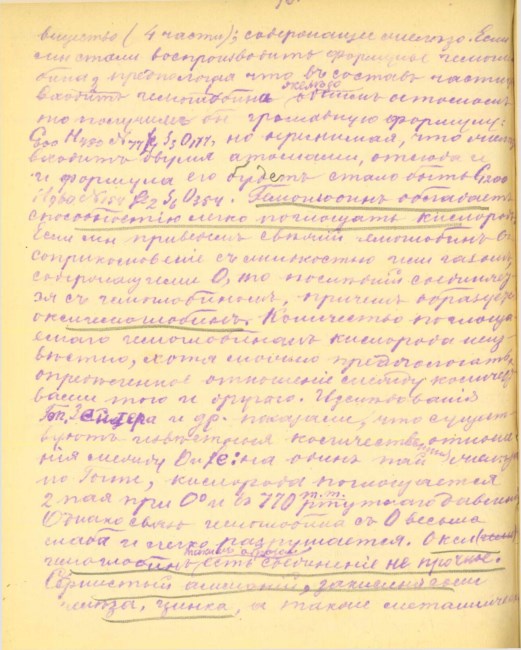 вещество (4 части); содержащее железо. Если
мы стали воспроизводить формулы гемогло-
бина, предпологая что въ составъ частицы
входитъ гемоглобина железо однимъ атомомъ
то получимъ бы громадную формулу:
C600 H480 N77 Fe S3 O177, но принимая, что железо
входитъ двумя атомами, отсюда и
и формула его будетъ стало быть C1200
H960 N154 Fe2 S6 O354. Гемоглобинъ обладаетъ
способностію легко поглощать кислородъ.
Если мы приведемъ свежій гемоглобинъ въ
соприкосновеніе съ жидкостью или газомъ,
содержащими O, то последній соединяет-
ся съ гемоглобиномъ, причемъ образуетъ
оксигемоглобинъ. Количество поглоща-
емаго гемоглобиномъ кислорода неиз-
вестно, хотя можно предпологать
определенное отношеніе между количест-
вами того и другого. Изследованія
Гоп. Зейлера и др. показали, что сущест-
вуютъ известныя количественныя отноше-
нія между O и Fe: на одинъ пай железа
по Гопе, кислорода поглощается
2 пая при 0° и въ 770 m.m. ртутнаго давленія
Однако связь гемоглобина съ O весьма
слаба и легко разрушается. Оксиге-
моглобинъ, такимъ образомъ есть соединеніе не прочное.
Сернистый аммоній, закисныя соли
железа, цинка, а также металлическ